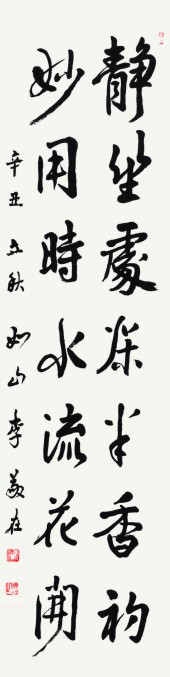 靜坐處茶半香初
妙用時水流花開
辛丑立秋如山李義在